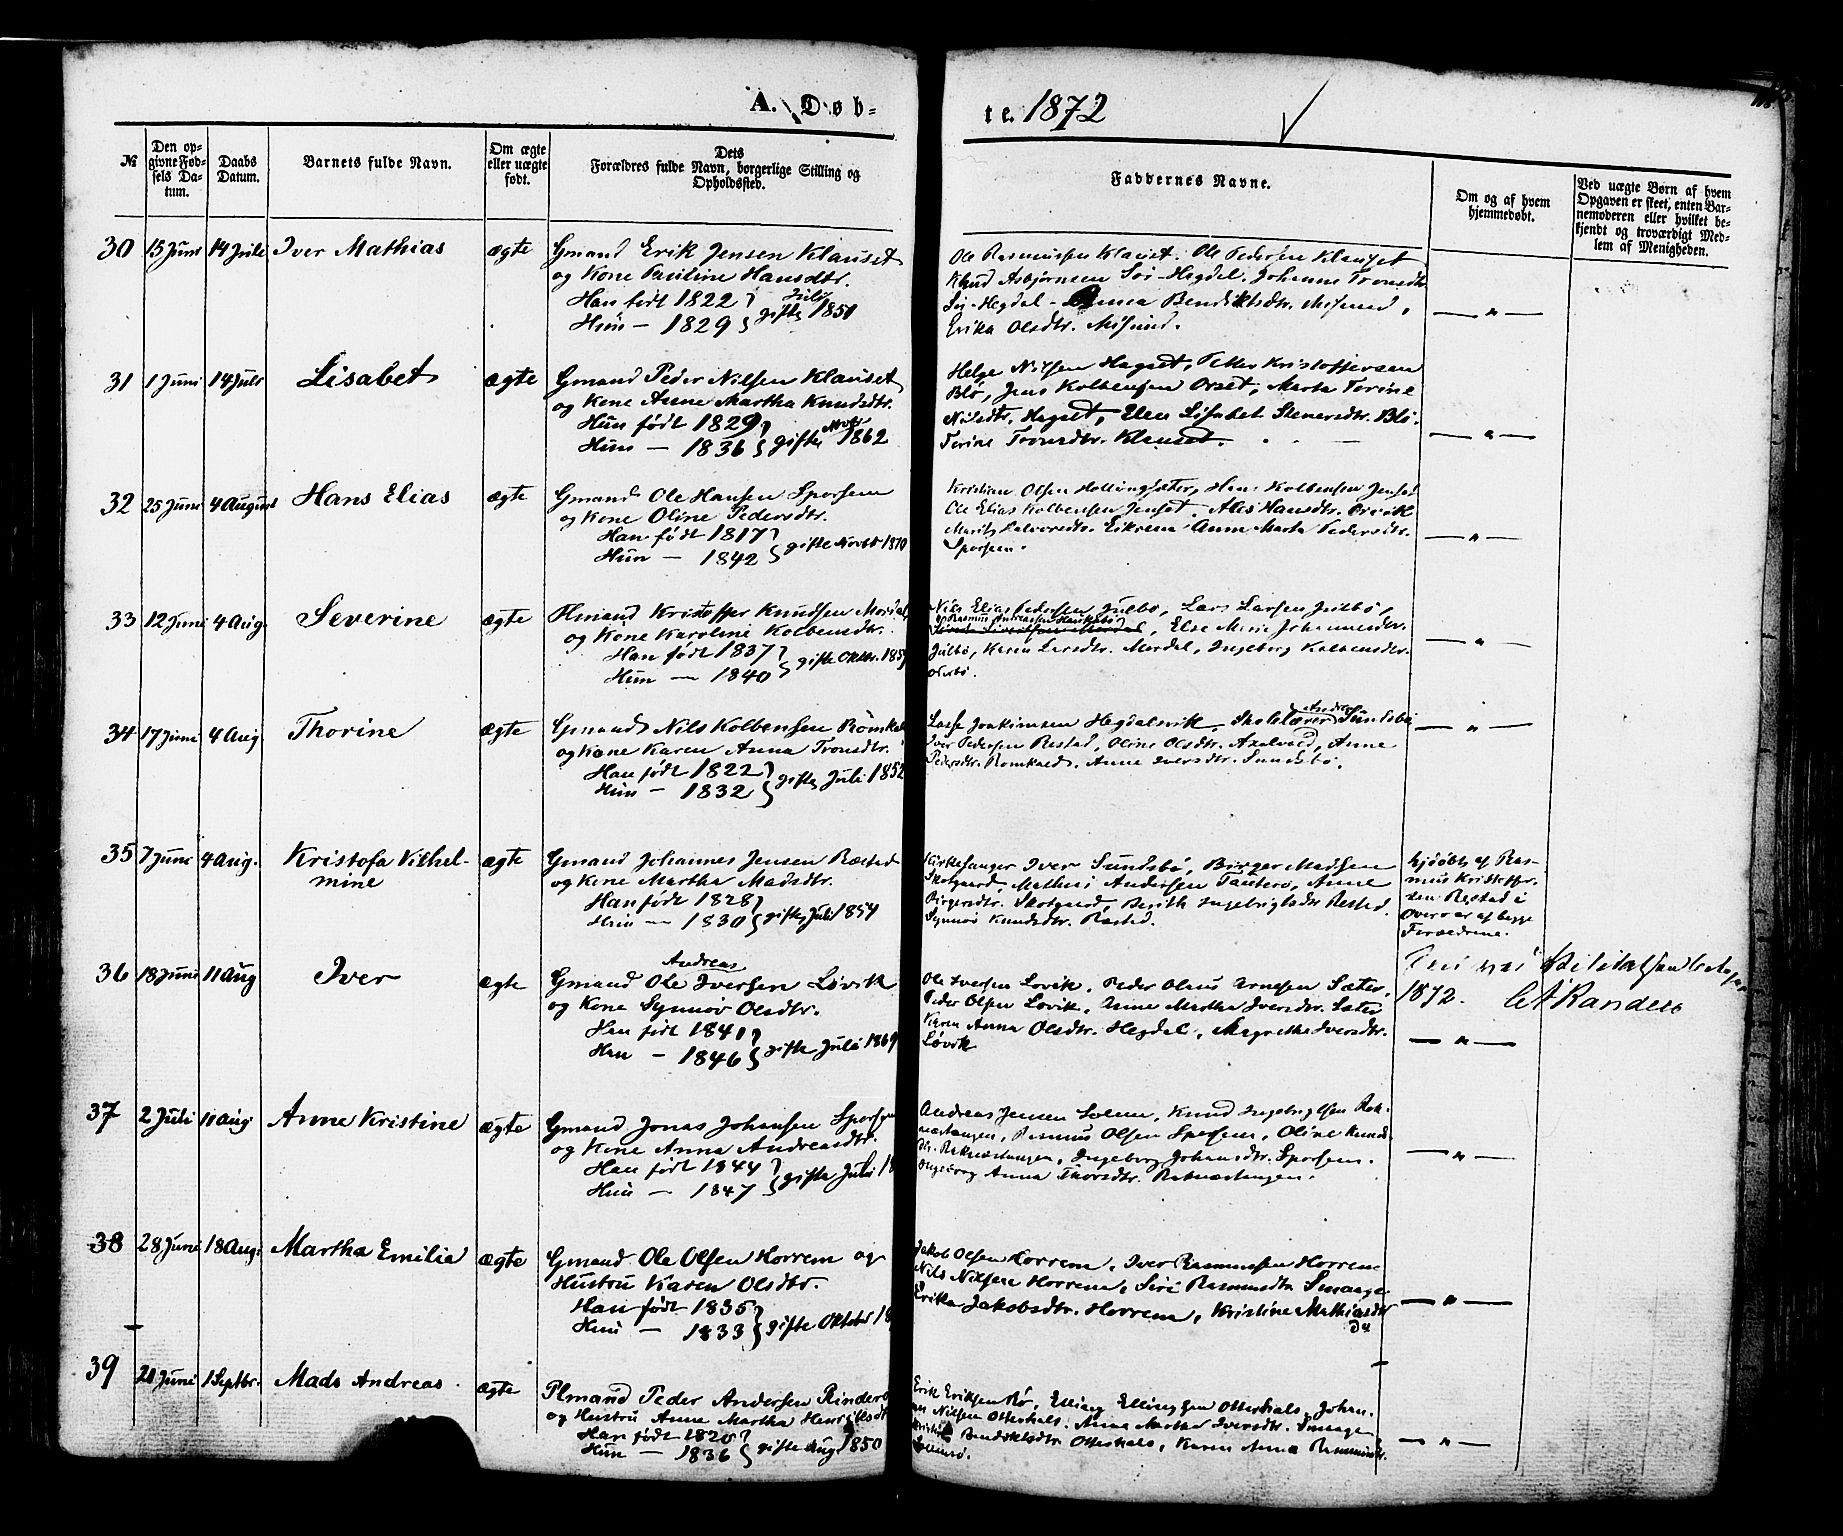 A. Døb-
te. 1872
№
Den op-
givne Fød-
sels Da-
tum.
Daabs
Datum.
Barnets fulde Navn.
Om ægte
eller uægte
født.
Dets
Forældres fulde Navn, borgerlige Stilling og
Opholdssted.
Faddernes Navne.
Om og af hvem
hjemmedøbt.
Ved uægte Børn af hvem
Opgaven er skeet, enten Bar-
nemoderen eller hvilket be-
kjendt og troværdigt Med-
lem af Menigheden.
30 15 Juni 14 Juli Iver Mathias ægte Gmand Erik Jensen Klauset
og Kone Pauline Hansdtr.
Han født 1822 } Juli
Hun — 1829 } gifte 1851
Ole Rasmussen Klauset. Ole Pedersen Klauset
Knud Asbjørnsen Sør-Hegdal, Johanne Tronsdtr
Sør-Hegdal - Anna Bendiktsdtr. Misund,
Erika Olsdtr. Misund.
— " —
31 1 Juni 14 Juli Lisabet ægte Gmand Peder Nilsen Klauset
og Kone Anne Martha Knudsdtr.
Hun født 1829 } Novbr
Hun — 1836 } gifte 1862
Helge Nilsen Hagset, Petter Kristoffersen
Blø, Jens Kolbensen Orset, Marta Terine
Nilsdtr. Hagset, Elen Lisabet Stenersdtr. Blø.
Terine Tronsdtr. Klauset.
— " —
32 25 Juni 4 August Hans Elias ægte Gmand Ole Hansen Sporsem
og Kone Oline Pedersdtr.
Han født 1817 }
Hun — 1842 } gifte Novbr 1870
Kristian Olsen Hollingsæter, Hans Kolbensen Jenset
Ole Elias Kolbensen Jenset. Ales Hansdtr.
Marit Halvorsdtr. Eikrem Anne Marta Pedersdtr.
Sporsem.
— " —
33 12 Juni 4 Aug. Severine ægte Kristoffer Knudsen Mordal
og Kone Karoline Kolbensdtr.
Han født 1837 }
Hun — 1840 } gifte Oktbr. 185
Nils Elias Pedersen Julbø, Lars Larsen Julbø,
Rasmus Andreassen
Else Marie Johannesdtr.
Julbø, Karen Larsdtr. Mordal, Ingeborg Kolbensdtr.
— " —
34 17 Juni 4 Aug Thorine ægte Gmand Nils Kolbensen Römkal
og Kone Karen Anna Tronsdtr.
Han født 1822 }
Hun — 1832 } gifte Juli 1852
Lasse Joakimsen Hegdalsvik, Skolelærer Andreas Sundsbø
Iver Pedersen Restad, Oline Olsdtr. Axelvold, Anne
Pedersdtr. Romkald. Anne Iversdtr. Sundsbø.
— " —
35 7 Juni 4 Aug. Kristofa Vilhel-
mine ægte Gmand Johannes Jensen Ræsted
og Kone Martha Madsdtr.
Han født 1828 }
Hun — 1830 } gifte Juli 1854
Kirkesanger Iver Sundsbø, Birger Madsen
Skotgaard, Mathias Andersen Tauterø, Anne
Birgersdtr. Skotgaard, Berith Ingebrigtsdtr Resteð.
Synnøv Knudsdtr. Rested.
hjdøbt af Ras-
mus Kristoffer-
sen Restad i
Overvær af begge
Forældrene.
36 18 Juni 11 Aug Iver ægte Gmand Ole Andreas Iversen Løvik
og Kone Synnøv Olsdtr.
Han født 1841 }
Han — 1846 } gifte Juli 1869
Ole Iversen Lovik, Peder Olaus Arnesen Sæter,
Peder Olsen Lovik, Anne Martha Iversdtr. Sæter
Karen Anna Olsdtr. Hegdal, Magrethe Iversdtr.
Løvik
1872.
Randers
— " —
37 2 Juli 11 Aug Anne Kristine ægte Gmand Jonas Johansen Sporsem
og Kone Anna Andreasdtr.
Han født 1844 }
Hun — 1847 } gifte Juli 18
Andreas Jensen Solem, Knud Ingebrigtsen Rak-
næstangen, Rasmus Olsen Sporsem, Oline Knuds-
dtr. Raknæstangen, Ingeborg Johansdtr. Sporsem.
Ingeborg Anna Thorsdtr. Raknæstangen.
— " —
38 28 Juni 18 Aug. Martha Emilie ægte Gmand Ole Olsen Horrem og
Hustru Karen Olsdtr.
Han født 1835 }
Hun — 1833 } gifte Oktober 18
Jakob Olsen Horrem, Iver Rasmussen Horrem
Nils Nilsen Horrem, Siri Rasmusdtr Smaage
Erika Jakobsdtr. Horrem, Kristine Mathiasdtr
do
— " —
39 21 Juni 1 Septbr. Mads Andreas ægte Plmand Peder Andersen Rinderø
og Hustru Anne Martha Henriksdtr
Han født 1820 }
Hun — 1836 } gifte Aug 1850
Erik Eriksen Rø, Elling Ellingsen Otterhals, Johan-
nes Nilsen Otterhals. Anne Martha Iversdtr. Smaagen
Bendiktsdtr Otterhals, Karen Anna Rasmusdtr.
— " —